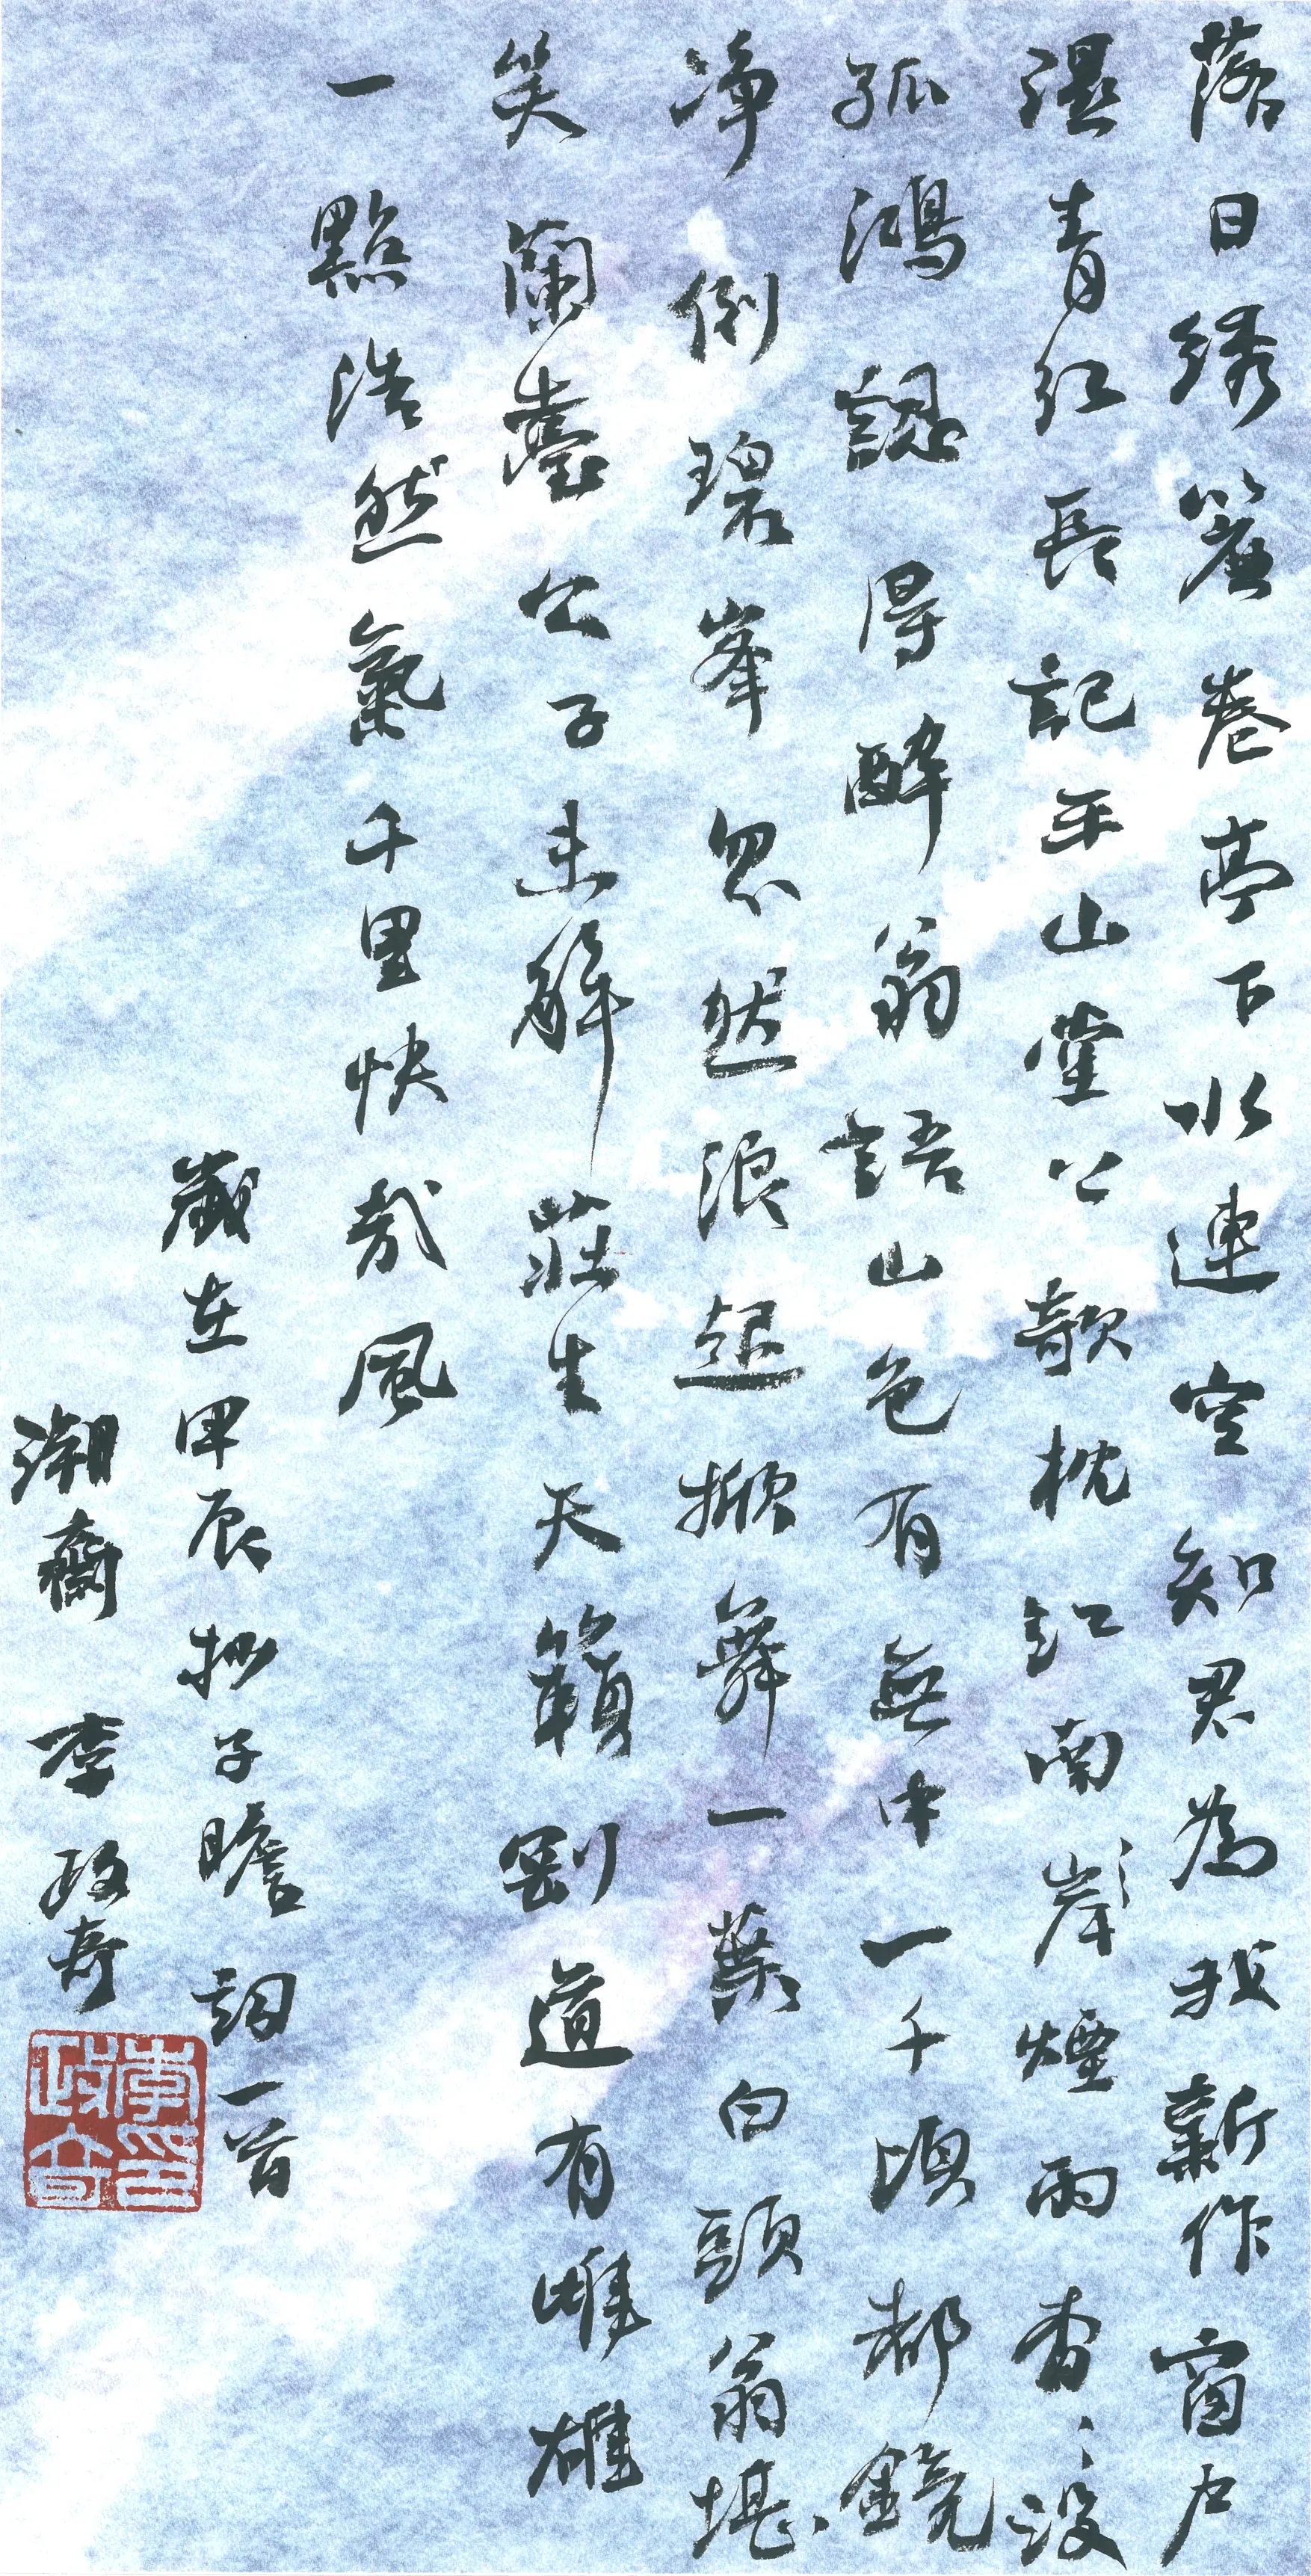 落日绣簾卷亭下水連空知君為我新作窗户
濕青红長記平山堂上欹枕江南岸煙雨杳〻没
孤鴻認得醉翁語山色有無中一千頃都鏡
净倒碧峯忽然浪起掀舞一葉白頭翁堪
笑蘭臺公子未解莊生天籟剛道有雌雄
一點浩然氣千里快哉風
歲在甲辰抄子瞻詞一首
齋 李政奇
李印政奇